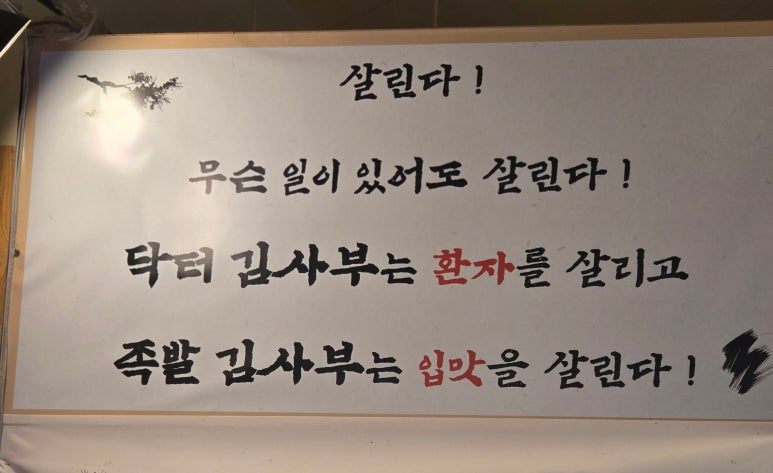 살린다!
무슨 일이 있어도 살린다!
닥터 김사부는 환자를 살리고
족발 김사부는 입맛을 살린다!